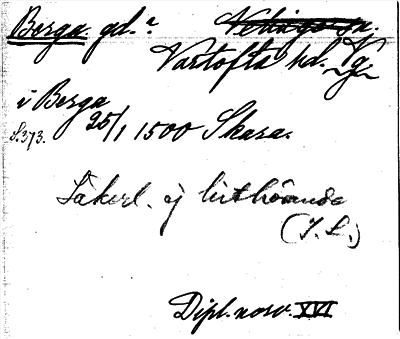 Berga. gd.? Velinge sn.
Vartofta hd. Vg
i Berga
S. 373. 25/1 1500 Skara.
Säkerl. ej hithörande
(I. L.)
Dipl. norv. XVI